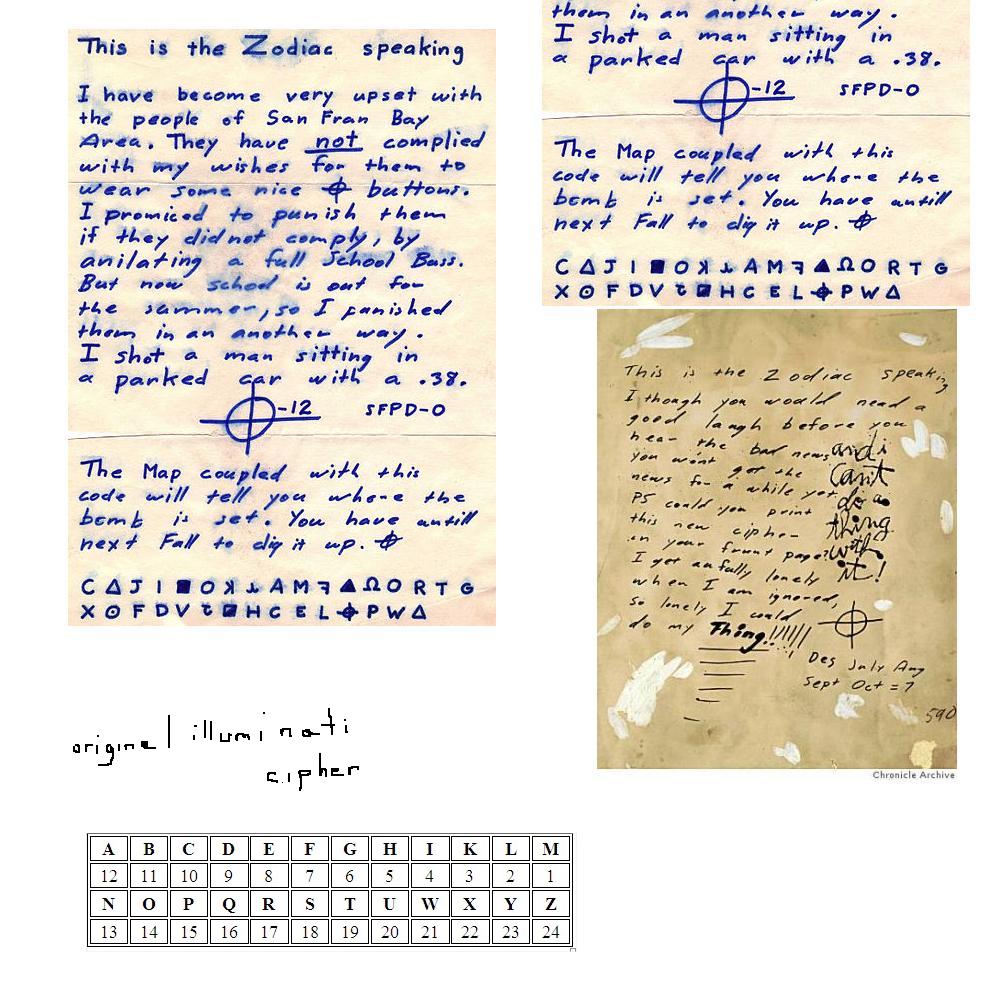 This is the Zodiac speaking
I have become very upset with
the people of San Fran Bay
Area. They have not complied
with my wishes for them to
wear some nice ⌖ buttons.
I promiced to punish them
if they did not comply, by
anilating a full School Buss.
But now school is out for
the sammer, so I panished
them in an another way.
I shot a man sitting in
a parked car with a .38.
⌖-12 SFPD-0
The Map coupled with this
code will tell you whore the
bomb is set. You have antill
next Fall to dig it up. ⌖
C Δ J I ■ O ꓘ ⅄ A M ꟻ ▲ Ω O R T G
X ⊙ F D V Ʇ ◪ H C E L ⌖ P W Δ
them in an another way.
I shot a man sitting in
a parked car with a .38.
⌖-12 SFPD-0
The Map coupled with this
code will tell you whore the
bomb is set. You have antill
next Fall to dig it up. ⌖
C Δ J I ■ O ꓘ ⅄ A M ꟻ ▲ Ω O R T G
X ⊙ F D V Ʇ ◪ H C E L ⌖ P W Δ
This is the Zodiac speaking
I though you would need a
good laugh before you
hear the bad news
you won't get the
news for a while yet
PS could you print
this new cipher
on your frunt page?
I get awfully lonely
when I am ignored,
so lonely I could
do my Thing!!!!!!
and i
Can't
do a
thing
with
it!
Des July Aug
Sept Oct = 7
590
Chronicle Archive
original illuminati
cipher
A B C D E F G H I K L M
12 11 10 9 8 7 6 5 4 3 2 1
N O P Q R S T U W X Y Z
13 14 15 16 17 18 19 20 21 22 23 24